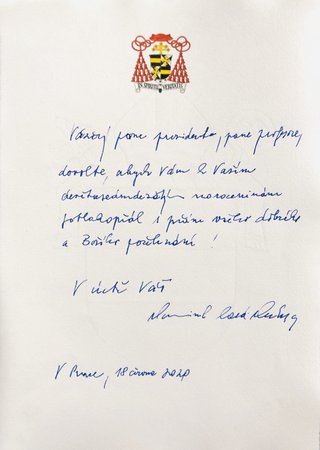 IN SPIRITU ET VERITATE
Vážený pane prezidente, pane profesore,
dovolte, abych Vám k Vašim
narozeninám
poblahopřál i přání všeho dobrého
a Božího požehnání!
V úctě Váš
Dominik Duka
V Praze, 18 června 2020